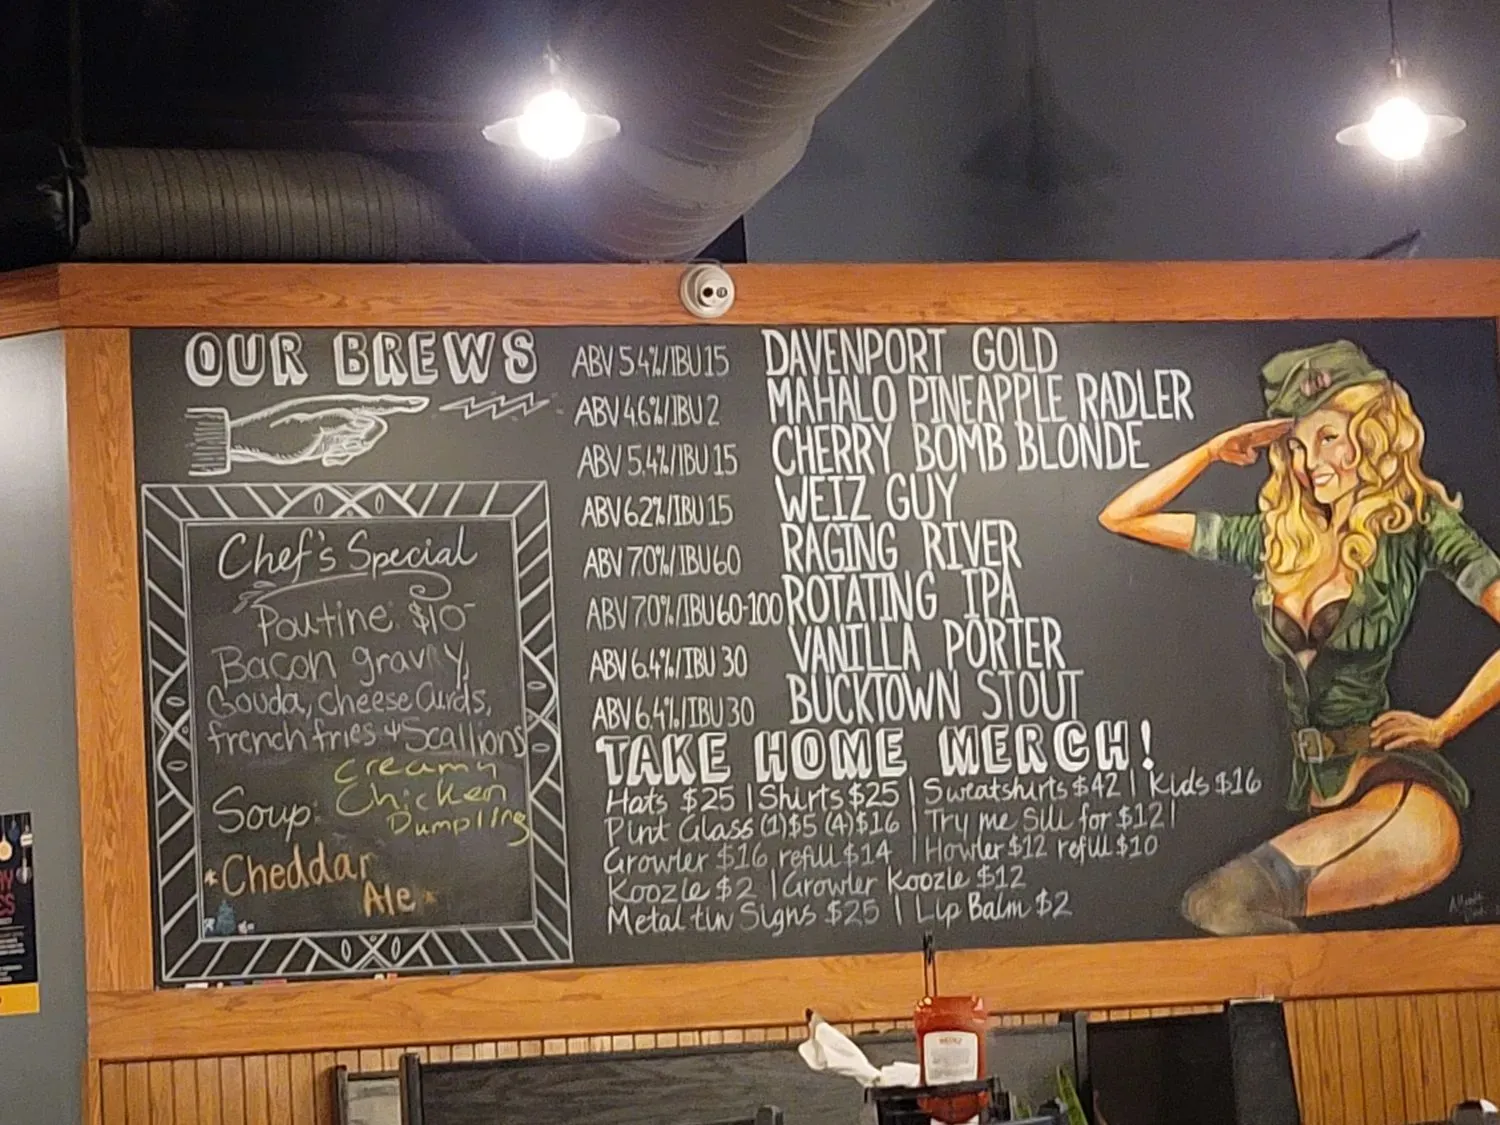 OUR BREWS
ABV 5.4%/IBU 15 DAVENPORT GOLD
ABV 4.6%/IBU 2 MAHALO PINEAPPLE RADLER
ABV 5.4%/IBU 15 CHERRY BOMB BLONDE
ABV 6.2%/IBU 15 WEIZ GUY
ABV 7.0%/IBU 60 RAGING RIVER
ABV 7.0%/IBU 60-100 ROTATING IPA
ABV 6.4%/IBU 30 VANILLA PORTER
ABV 6.4%/IBU 30 BUCKTOWN STOUT
Chef's Special
Poutine: $10
Bacon gravy,
Gouda, cheese Curds,
french fries & Scallions
Soup: Creamy
Chicken
Dumpling
*Cheddar
Ale*
TAKE HOME MERCH!
Hats $25 | Shirts $25 | Sweatshirts $42 | Kids $16
Pint Glass (1)$5 (4)$16 | Try me Sill for $12!
Growler $16 refill $14 | Howler $12 refill $10
Koozie $2 | Growler Koozie $12
Metal tin Signs $25 | Lip Balm $2
HEINZ